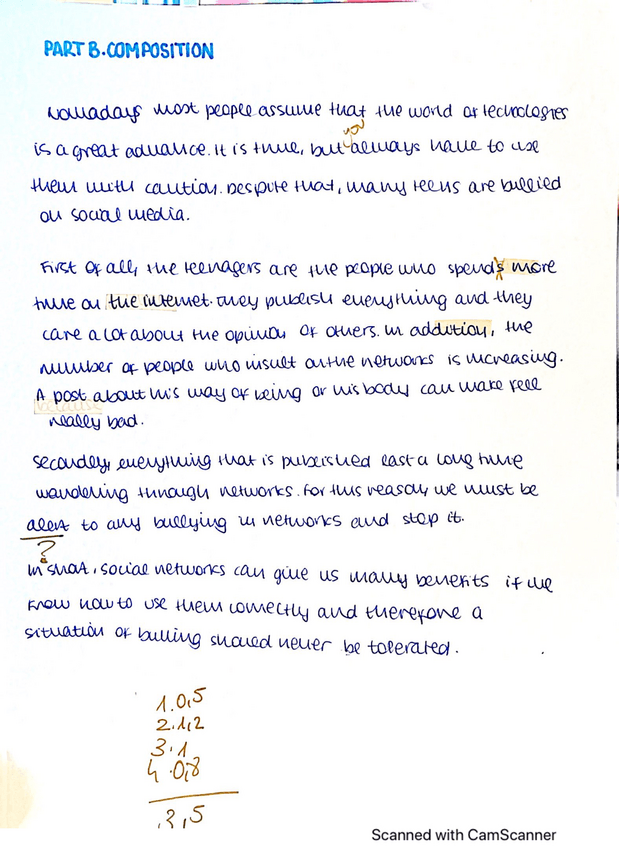 PART B. COMPOSITION
Nowadays most people assume that the world of technologies
you
is a great advance. It is true, but always have to use
them with caution. Despite that, many teens are bullied
on social media.
First of all, the teenagers are the people who spends more
time on the internet. They publish everything and they
care a lot about the opinion of others. In addition, the
number of people who insult on the networks is increasing.
A post about his way of being or his body can make feel
really bad.
Secondly, everything that is published last a long time
wandering through networks. For this reason, we must be
alert to any bullying in networks and stop it.
?
In short, social networks can give us many benefits if we
know how to use them correctly and therefore a
situation of bulling should never be tolerated.
1. 0,5
2. 1,2
3. 1
4. 0,8
3,5
Scanned with CamScanner